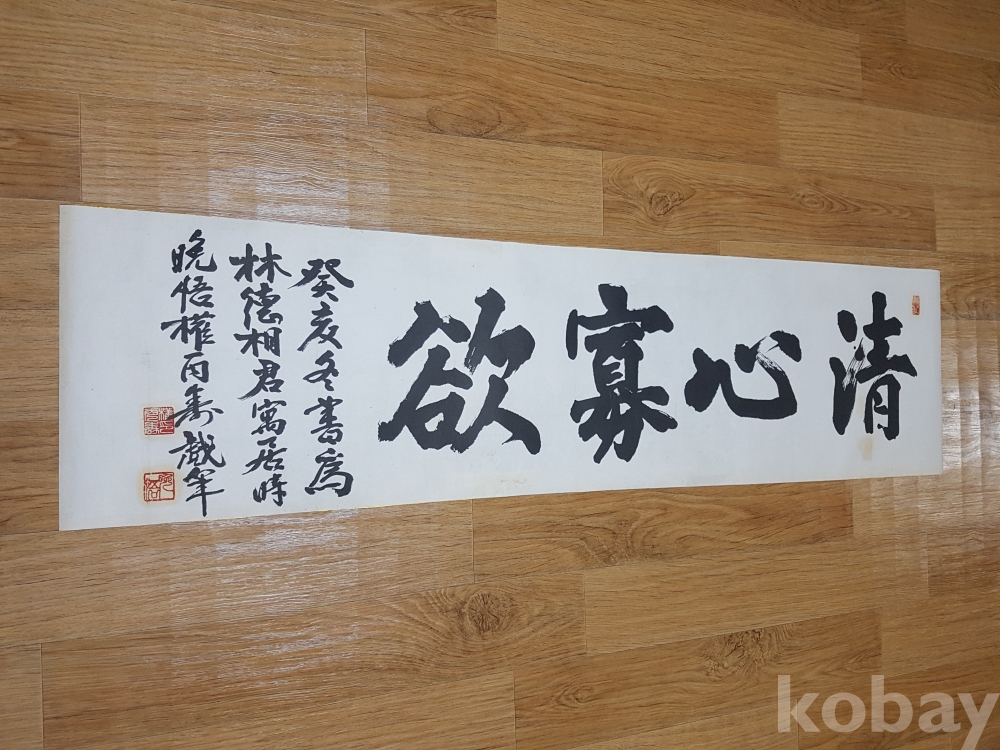 清心寡欲
癸亥冬書為
林德相君寓居時
晩悟權丙壽戱筆
kobay